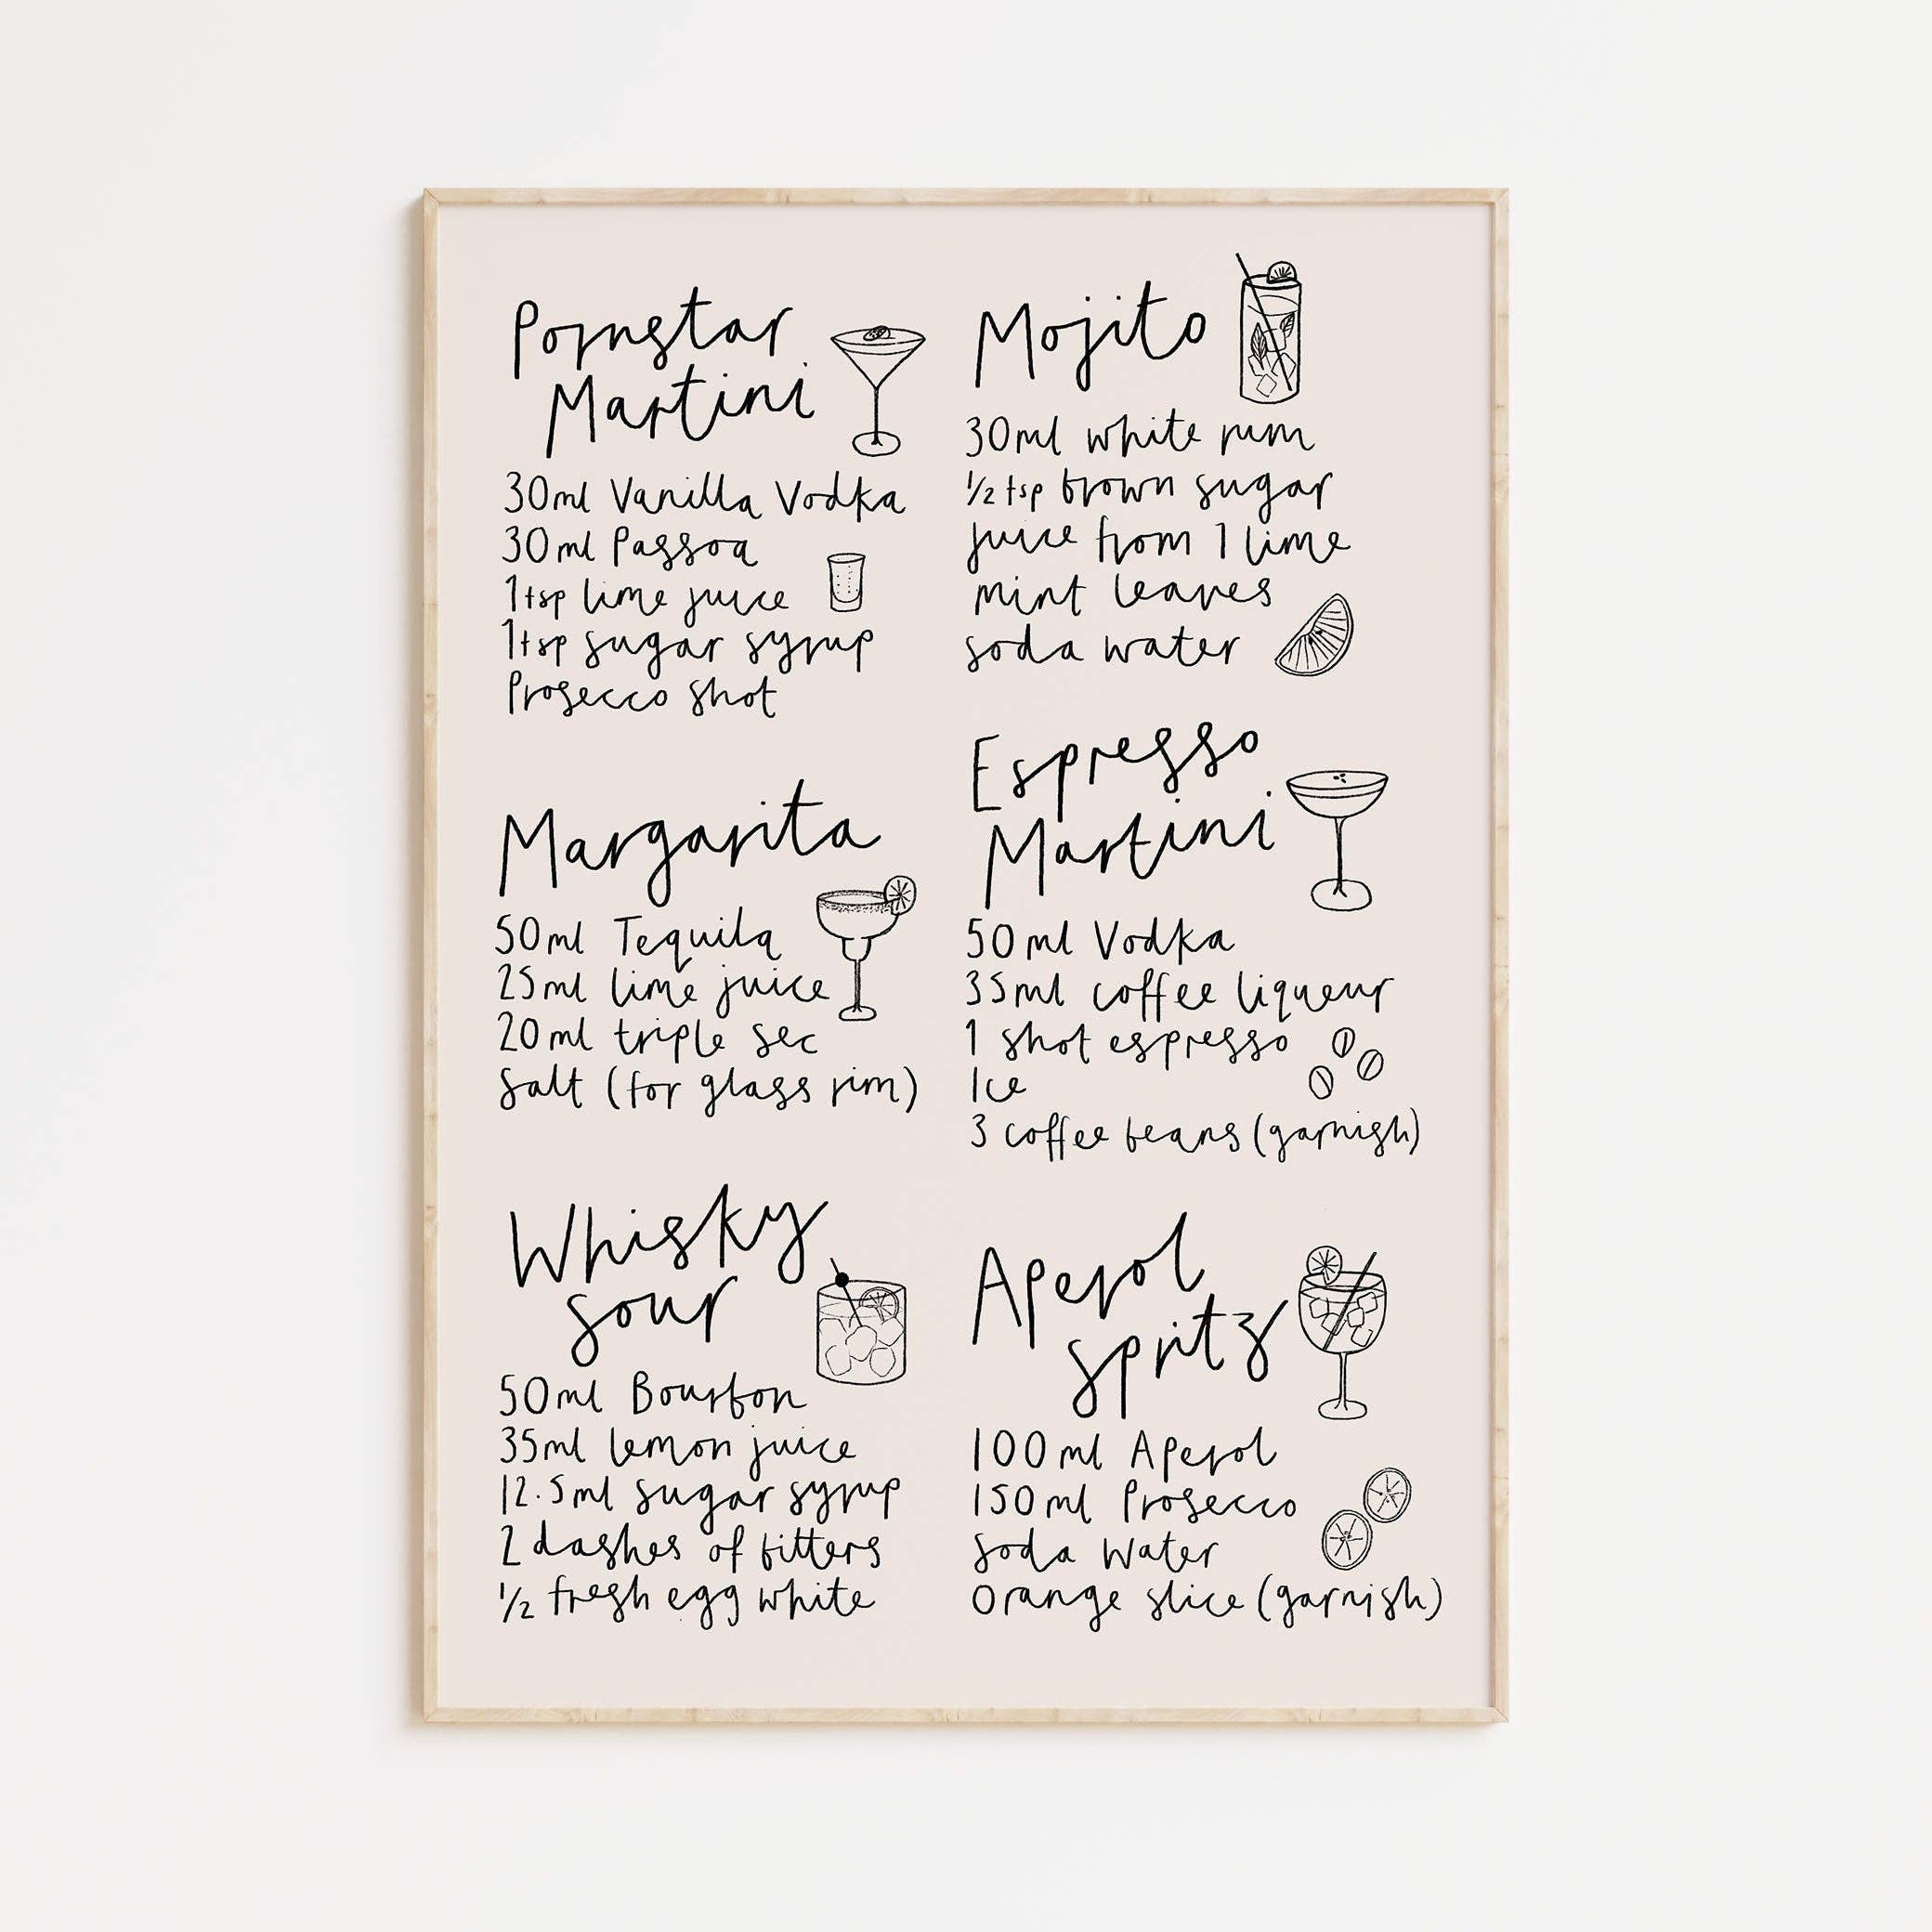 Pornstar
Martini
30ml Vanilla Vodka
30ml Passoa
1tsp lime juice
1tsp sugar syrup
Prosecco shot
Margarita
50ml Tequila
25ml lime juice
20ml triple sec
Salt (for glass rim)
Whisky
sour
50ml Bourbon
35ml lemon juice
12.5ml sugar syrup
2 dashes of bitters
1/2 fresh egg white
Mojito
30ml white rum
1/2 tsp brown sugar
juice from 1 lime
mint leaves
soda water
Espresso
Martini
50ml Vodka
35ml coffee liqueur
1 shot espresso
Ice
3 coffee beans (garnish)
Aperol
spritz
100ml Aperol
150ml Prosecco
Soda Water
Orange slice (garnish)